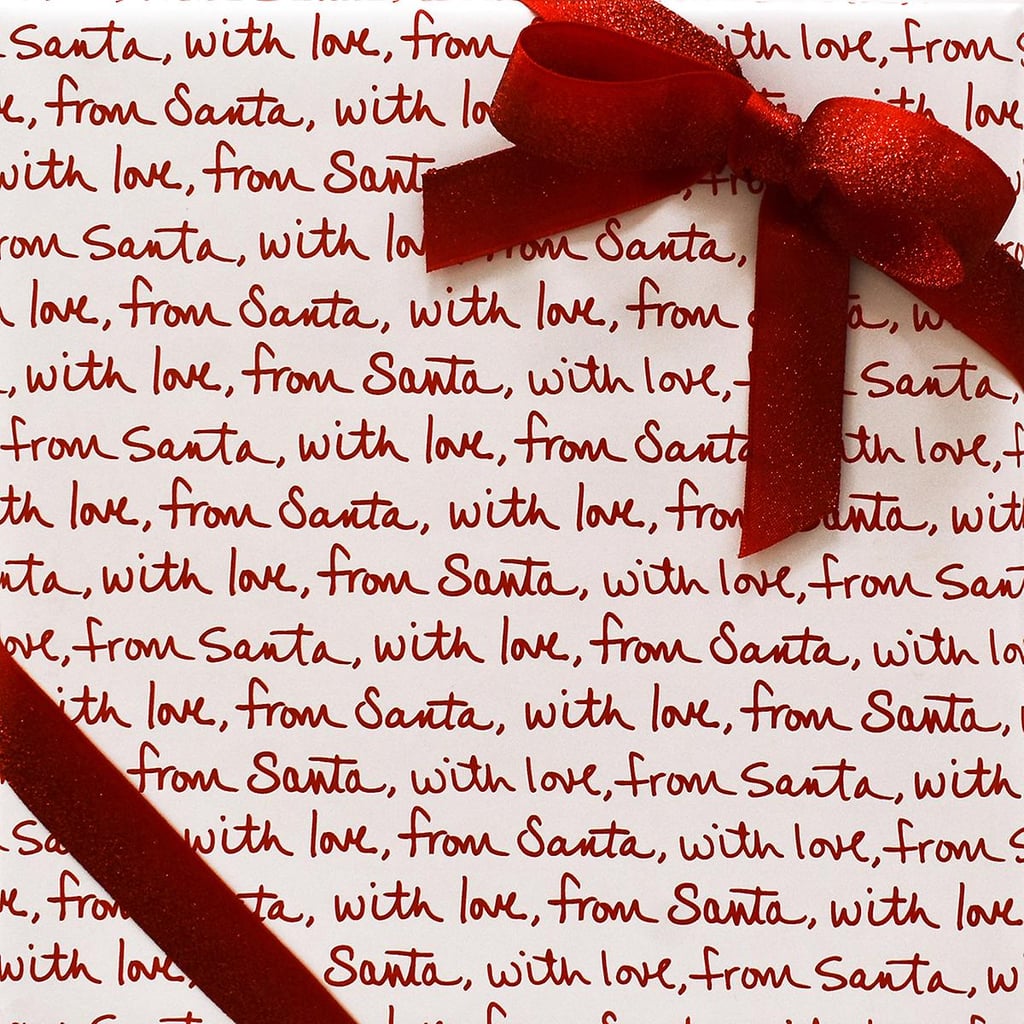 Santa, with love, from with love, from
from Santa, with with love
with love, from Santa
from Santa, with from Santa,
love, from Santa, with love, from
, with love, from Santa, with love, Santa,
from Santa, with love, from Santa with love,
with love, from Santa, with love, from Santa, with
Santa, with love, from Santa, with love, from Santa
love, from Santa, with love, from Santa, with
with love, from Santa, with love, from Santa,
from Santa, with love, from Santa, with
with love, from Santa, with love, from
from with love, from Santa, with love
with love, Santa, with love, from Santa,